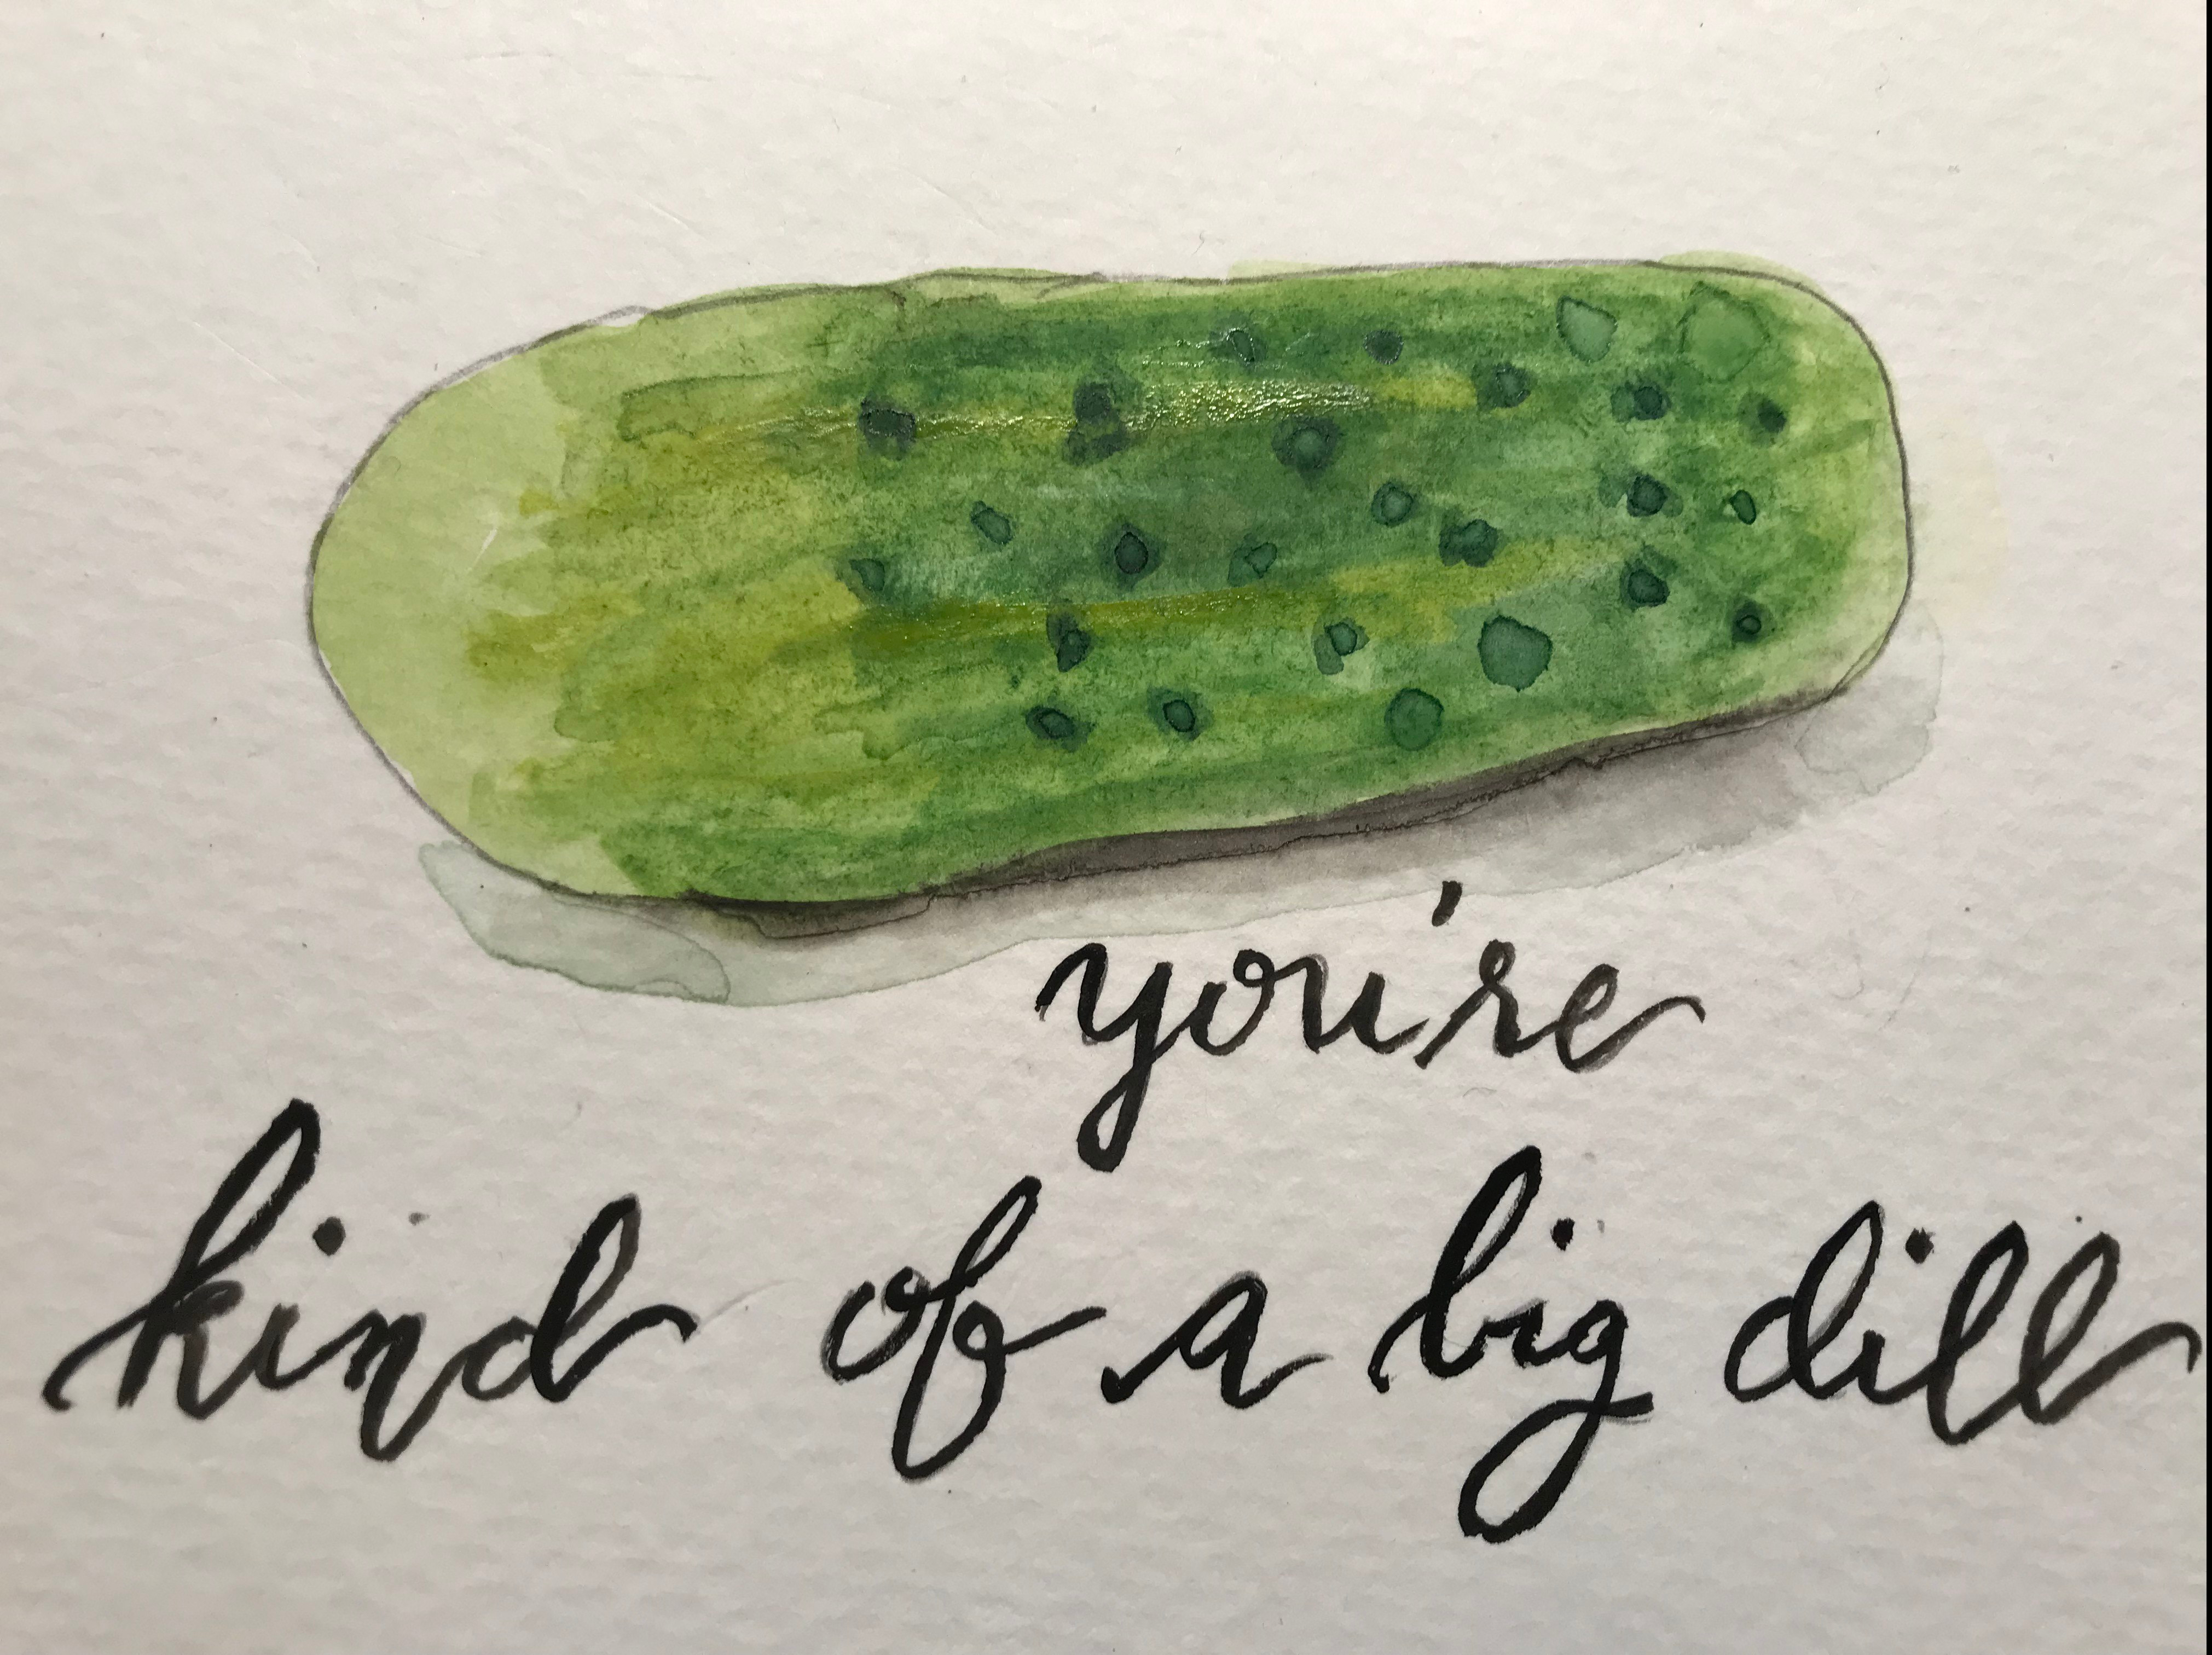 you're
kind of a big dill